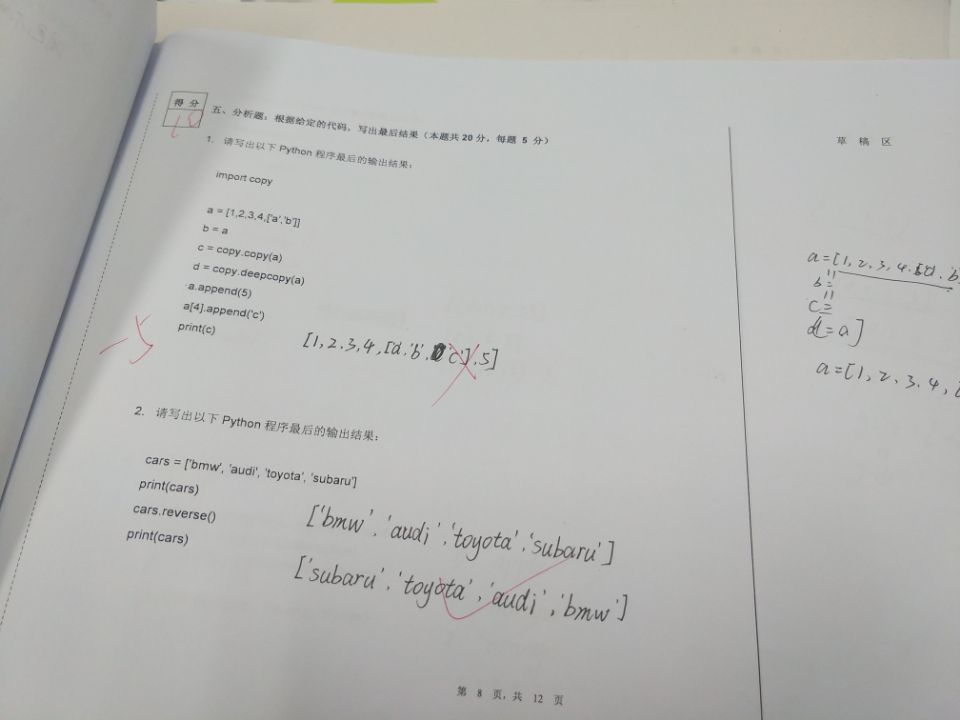 得 分
五、分析题：根据给定的代码，写出最后结果（本题共 20 分，每题 5 分）
1. 请写出以下 Python 程序最后的输出结果：
import copy
a = [1,2,3,4,['a','b']]
b = a
c = copy.copy(a)
d = copy.deepcopy(a)
a.append(5)
a[4].append('c')
print(c)
[1,2,3,4,[a,'b','c'],5]
-5
2. 请写出以下 Python 程序最后的输出结果：
cars = ['bmw', 'audi', 'toyota', 'subaru']
print(cars)
cars.reverse()
print(cars)
['bmw','audi','toyota','subaru']
['subaru','toyota','audi','bmw']
第 8 页，共 12 页
草 稿 区
b =
c =
d = a]
a=[1,2,3,4,